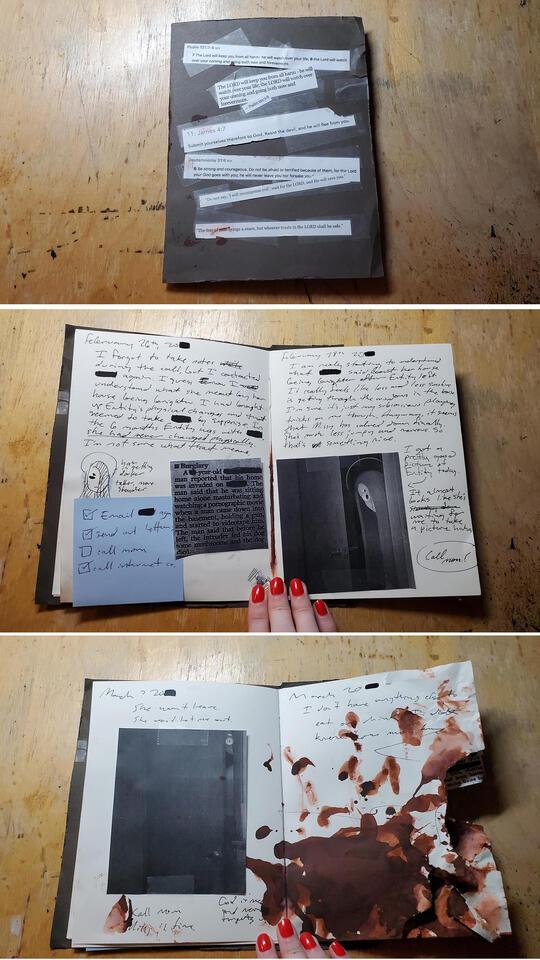 Psalm 121:7-8 NIV
7 The Lord will keep you from all harm- he will watch over your life; 8 the Lord will watch
over your coming and going both now and forevermore.
The LORD will keep you from all harm - he will
watch over your life; the LORD will watch over
your coming and going both now and
forevermore.
Psalm 121:7-8
11. James 4:7
Submit yourselves therefore to God. Resist the devil, and he will flee from you.
Deuteronomy 31:6 NIV
6 Be strong and courageous. Do not be afraid or terrified because of them, for the Lord
your God goes with you; he will never leave you nor forsake you."
"Do not say, 'I will recompense evil'; wait for the LORD, and He will save you."
"The fear of man brings a snare, but whoever trusts in the LORD shall be safe."
February 26th 20
I forgot to take notes
during the call, but I contacted
again. I guess I
understand what she meant by her
horse being
Entity's physical changes and that
seemed to take by surprise. In
the 6 months Entity was with
she had never changed physically.
I'm not sure what that means.
hair
is getting
darker
taker, more
☑ Email again
☑ send out letters
☐ call mom
☑ call internet co.
■ Burglary
A -year-old
man reported that his home
was invaded on The
man said that he was sitting
home alone masturbating and
watching a pornographic movie
when a man came down into
the basement, holding a gun,
and started to videotape him.
The man said that before he
left, the intruder fed his dog
some mushrooms and the dog
died.
February 28th 20
I am really starting to understand
what said about her horse
being after Entity left
It really feels like less and less sunlight
is getting through the windows in the house
I'm sure it's just my subconscious playing
tricks on me though. anyway, it seems
that Missy has calmed down finally
that's something nice.
I got a
pretty good
picture of
Entity today
It almost
looks like she's
waiting for
me to take
a picture haha
Call
mom!
March ? 20
She won't leave.
She won't let me out.
Call mom
time
God is
March 20
I don't have anything
eat